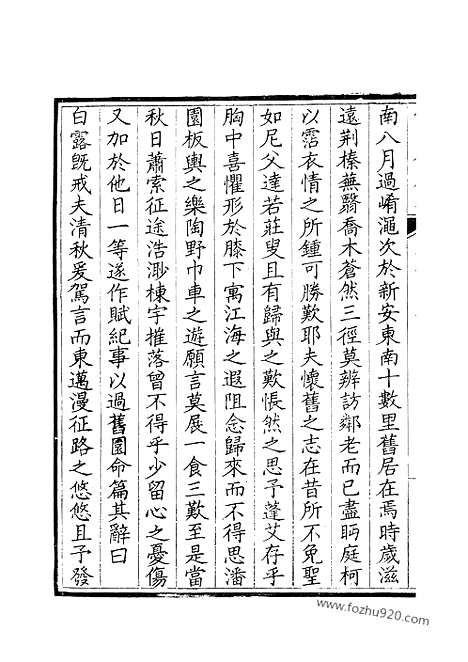 南八月過崤澠次於新安東南十數里舊居在焉時歲滋
遠荆榛蕪翳喬木蒼然三徑莫辨訪鄰老而已盡眄庭柯
以霑衣情之所鍾可勝歎耶夫懷舊之志在昔所不免聖
如尼父達若莊叟且有歸與之歎悵然之思予蓬艾存乎
胸中喜懼形於膝下寓江海之遐阻念歸來而不得思潘
園板輿之樂陶野巾車之遊願言莫展一食三歎至是當
秋日蕭索征途浩渺棟宇摧落曾不得乎少留心之憂傷
又加於他日一等遂作賦紀事以過舊園命篇其辭曰
白露既戒夫清秋爰駕言而東邁漫征路之悠悠且予發
www.fozhu920.com